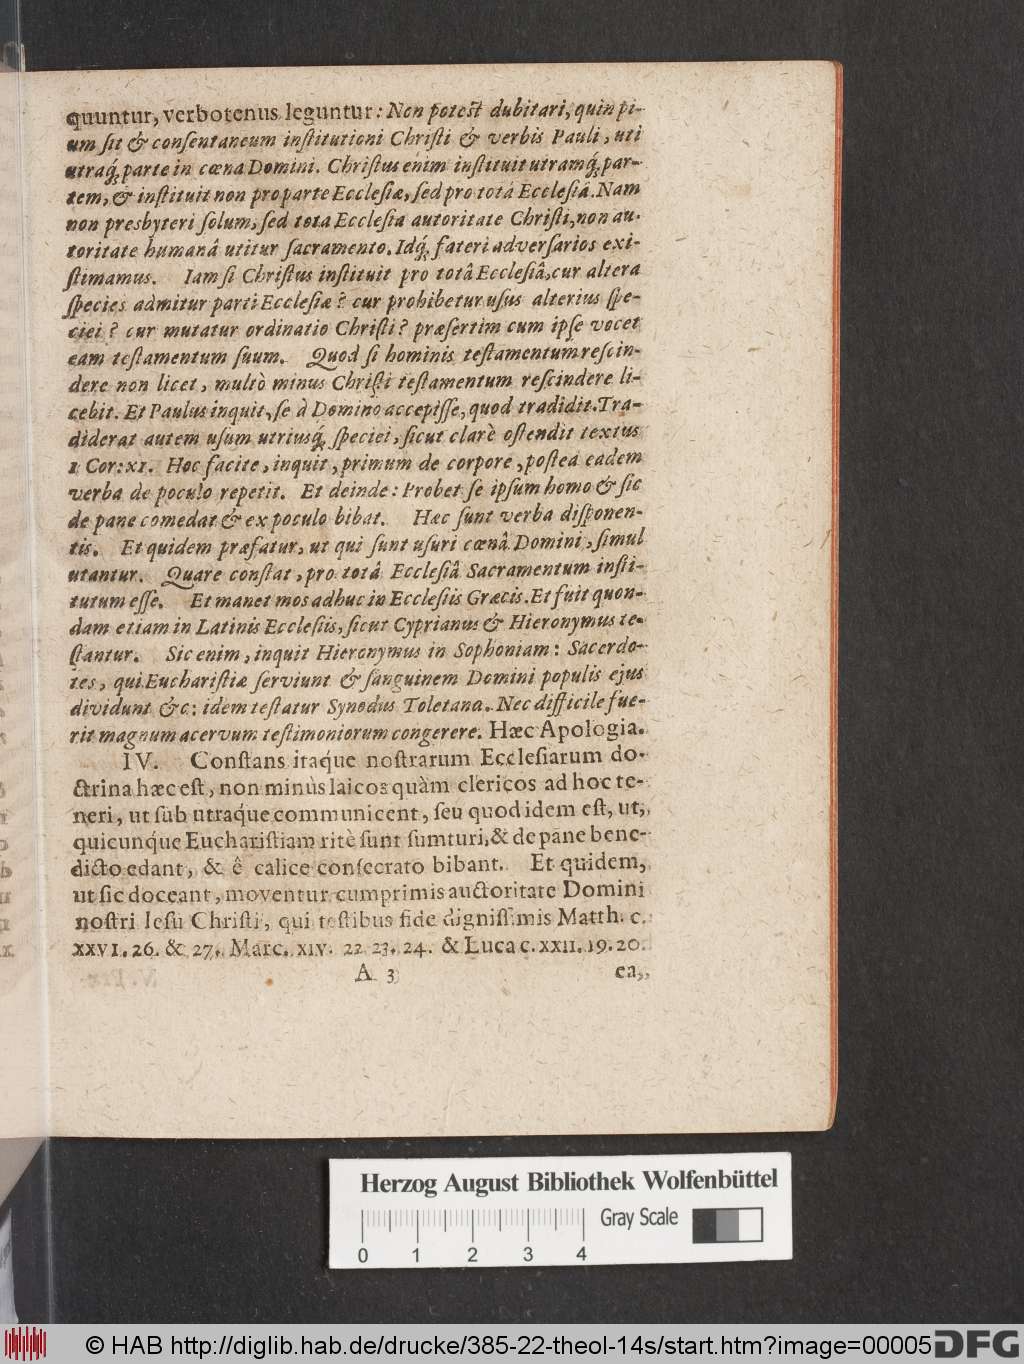 quuntur, verbotenus leguntur: Non poteſt dubitari, quin pi-
um ſit & conſentaneum inſtitutioni Chriſti & verbis Pauli, uti
utraq́; parte in cœna Domini. Chriſtus enim inſtituit utramq́; par-
tem, & inſtituit non pro parte Eccleſiæ, ſed pro totâ Eccleſiâ. Nam
non presbyteri ſolum, ſed tota Eccleſia autoritate Chriſti, non au-
toritate humanâ utitur ſacramento. Idq́; fateri adverſarios exi-
ſtimamus. Iam ſi Chriſtus inſtituit pro totâ Eccleſiâ, cur altera
ſpecies admitur parti Eccleſiæ? cur prohibetur uſus alterius ſpe-
ciei? cur mutatur ordinatio Chriſti? præſertim cum ipſe vocet
eam teſtamentum ſuum. Quod ſi hominis teſtamentum reſcin-
dere non licet, multò minus Chriſti teſtamentum reſcindere li-
cebit. Et Paulus inquit, ſe à Domino accepiſſe, quod tradidit. Tra-
diderat autem uſum utriusq́; ſpeciei, ſicut clarè oſtendit textus
1 Cor: XI. Hoc facite, inquit, primum de corpore, poſtea eadem
verba de poculo repetit. Et deinde: Probet ſe ipſum homo & ſic
de pane comedat & ex poculo bibat. Hæc ſunt verba diſponen-
tis. Et quidem præfatur, ut qui ſunt uſuri cœnâ Domini, ſimul
utantur. Quare conſtat, pro totâ Eccleſiâ Sacramentum inſti-
tutum eſſe. Et manet mos adhuc in Eccleſiis Græcis. Et fuit quon-
dam etiam in Latinis Eccleſiis, ſicut Cyprianus & Hieronymus te-
ſtantur. Sic enim, inquit Hieronymus in Sophoniam: Sacerdo-
tes, qui Euchariſtiæ ſerviunt & ſanguinem Domini populis ejus
dividunt &c: idem teſtatur Synodus Toletana. Nec difficile fue-
rit magnum acervum teſtimoniorum congerere. Hæc Apologia.
IV. Conſtans itaq́ue noſtrarum Eccleſiarum do-
ctrina hæc eſt, non minùs laicos quàm clericos ad hoc te-
neri, ut ſub utraq́ue communicent, ſeu quod idem eſt, ut,
quicunq́ue Euchariſtiam ritè ſunt ſumturi, & de pane bene-
dicto edant, & ê calice conſecrato bibant. Et quidem,
ut ſic doceant, moventur cumprimis auctoritate Domini
noſtri Ieſu Chriſti, qui teſtibus fide digniſſimis Matth. c.
XXVI. 26. & 27. Marc. XIV. 22 23. 24. & Luca c. XXII. 19. 20.
A 3 ea,,
Herzog August Bibliothek Wolfenbüttel
Gray Scale
0 1 2 3 4
© HAB http://diglib.hab.de/drucke/385-22-theol-14s/start.htm?image=00005
DFG